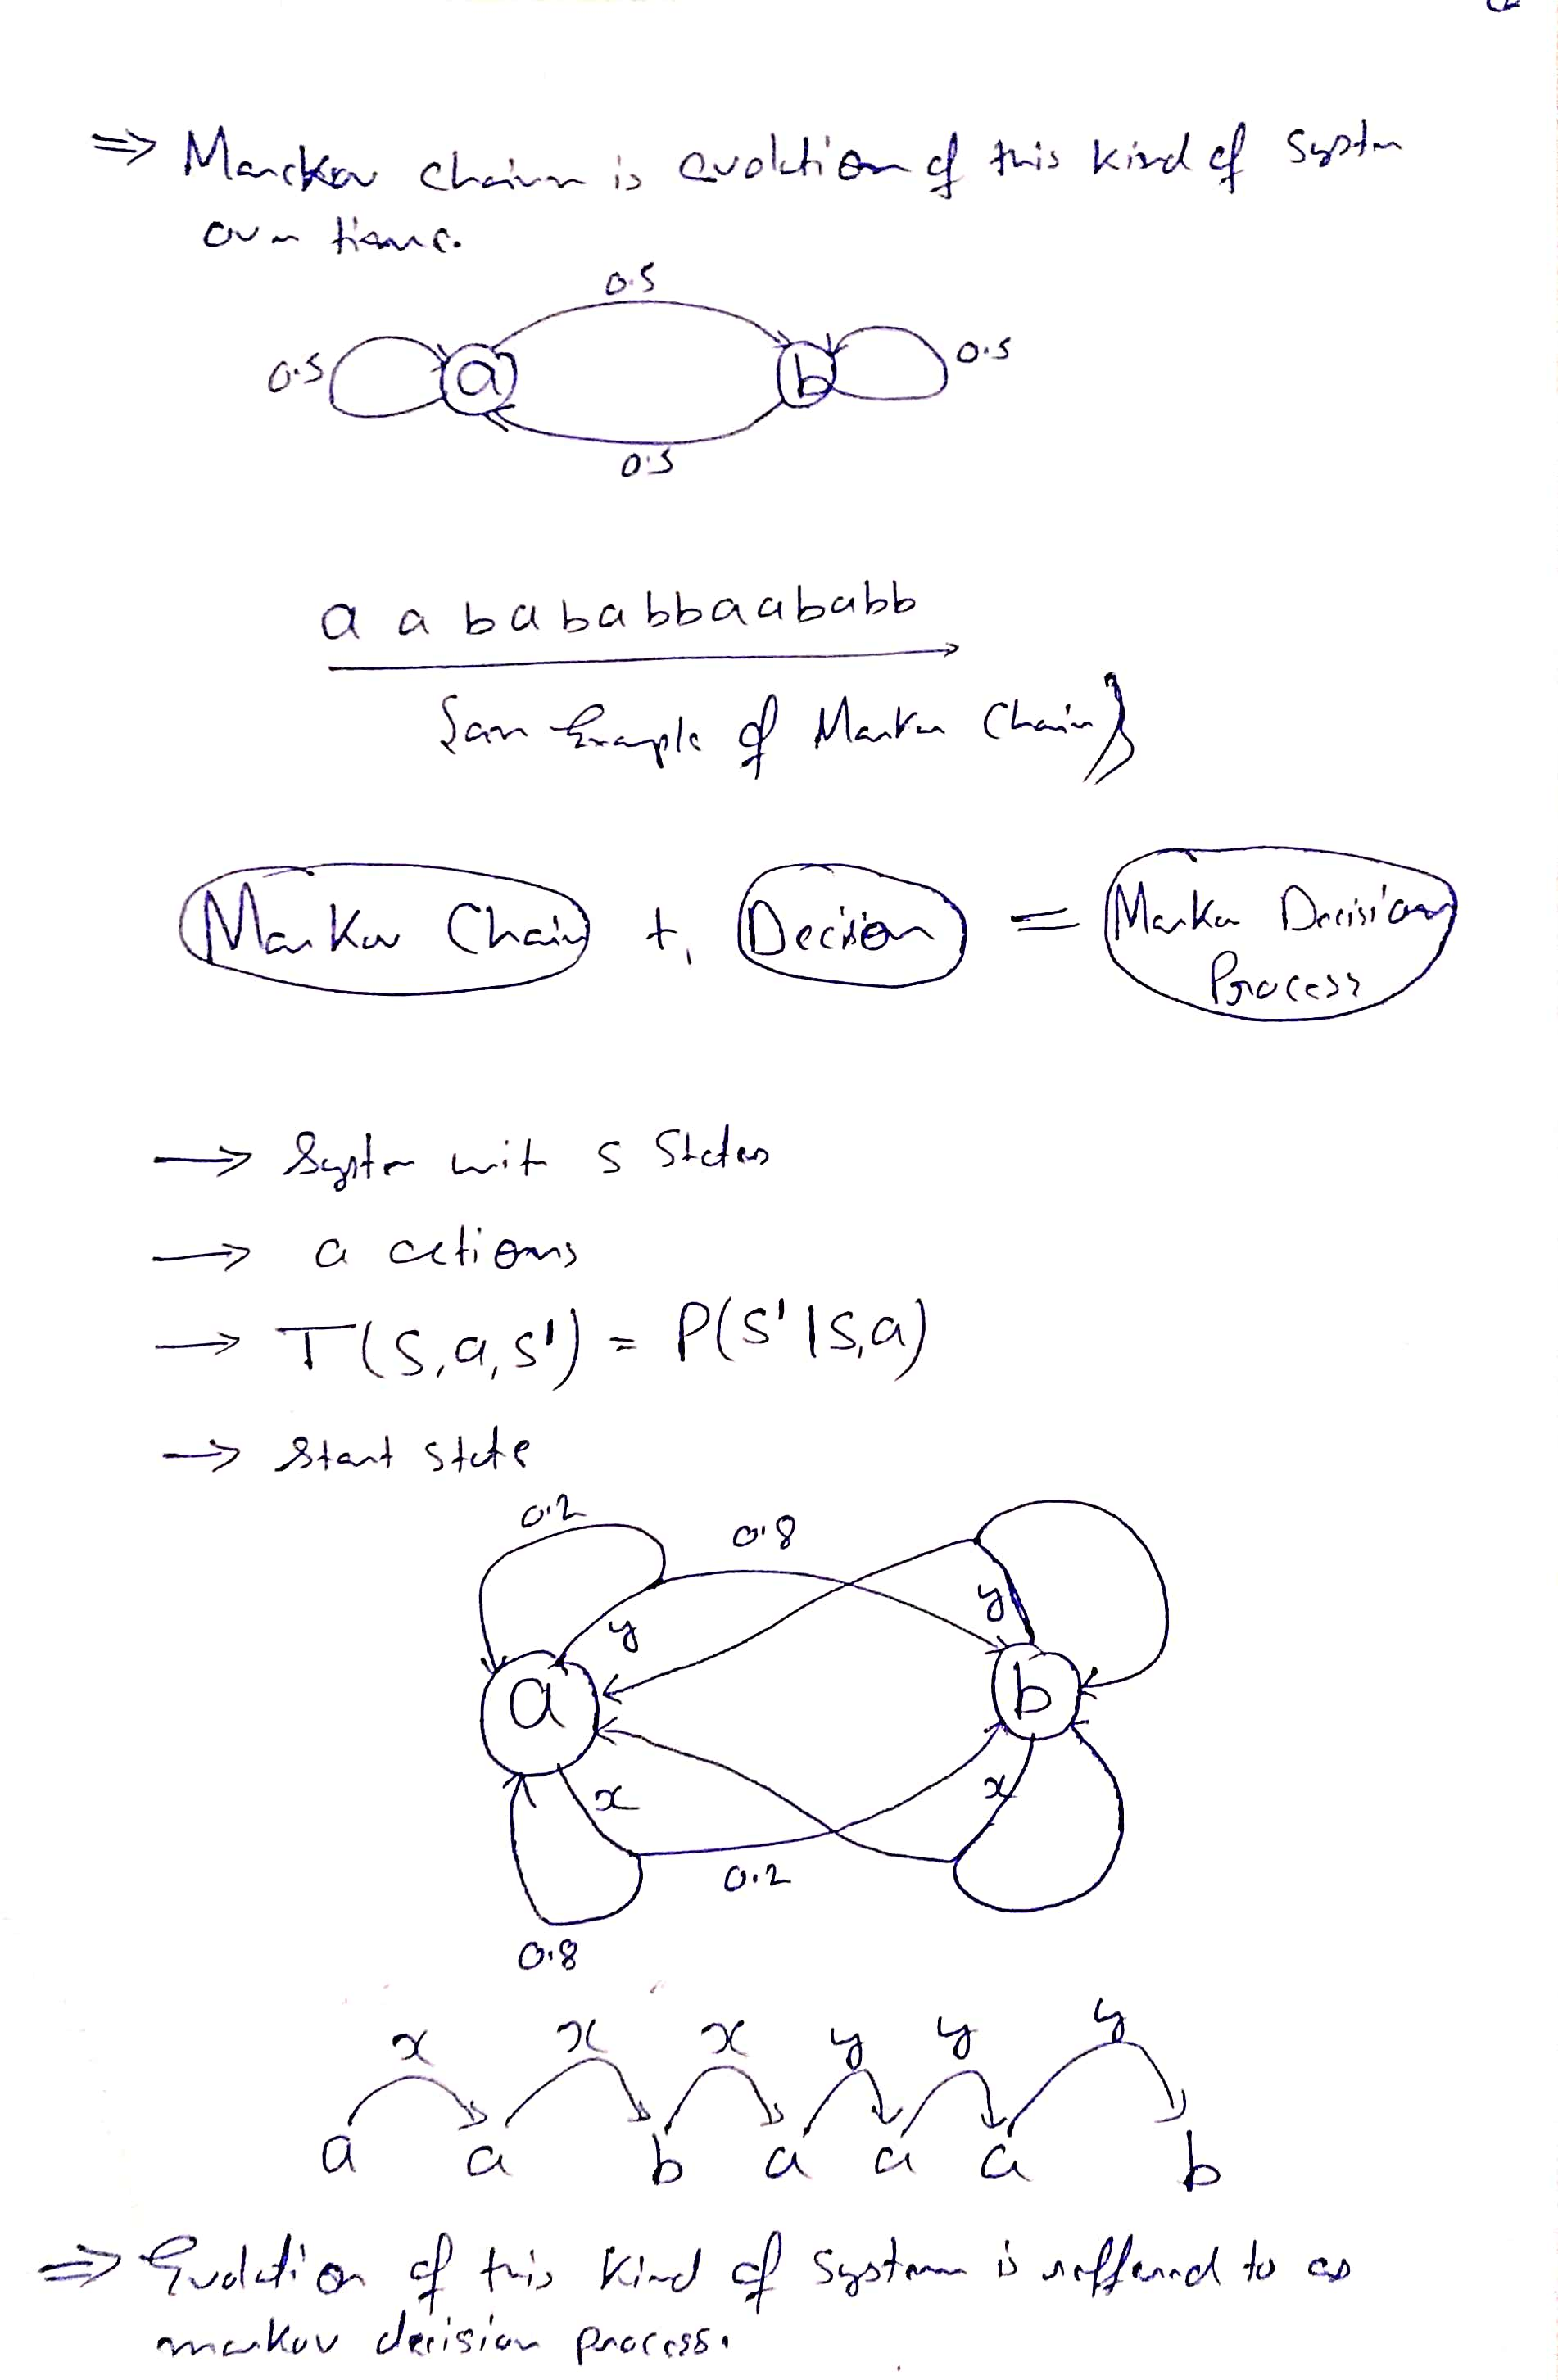 ⇒ Marckov chain is evolution of this kind of system
over time.
0.5
0.5 a b 0.5
0.5
a a b a b a b b a a b a b b
{an Example of Markov Chain}
Markov Chain + Decision = Markov Decision
Process
→ System with s states
→ a actions
→ T(s,a,s') = P(s'|s,a)
→ start state
0.2 0.8
y y
a b
x x
0.2
0.8
x x x y y y
a a b a a a b
⇒ Evolution of this kind of system is refferred to as
markov decision process.